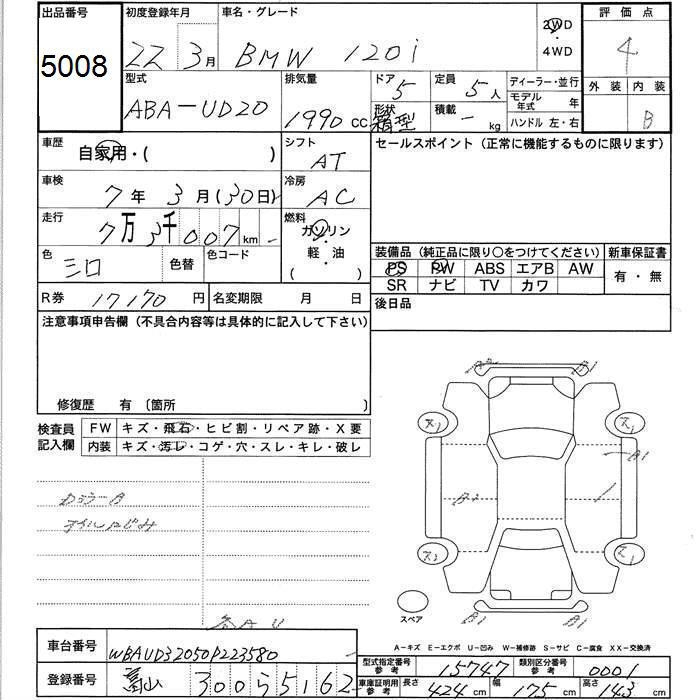 出品番号 初度登録年月 車名・グレード 評価点
5008 22 3月 BMW 120i 2WD ・ 4WD 4
型式 排気量 ドア 定員 ディーラー・並行 外装 内装
ABA-UD20 1990 cc 5 5人 モデル年式 年
形状 箱型 積載 - kg ハンドル 左・右 B
車歴 自家用・( ) シフト AT セールスポイント (正常に機能するものに限ります)
車検 7年 3月(30日) 冷房 AC
走行 7万3千007km 燃料 ガソリン・軽油 ( )
色 シロ 色替 色コード
装備品 (純正品に限り○をつけてください) 新車保証書
PS PW ABS エアB AW 有・無
SR ナビ TV カワ
R券 17170円 名変期限 月 日 後日品
注意事項申告欄 (不具合内容等は具体的に記入して下さい)
修復歴 有 〔箇所 〕
検査員記入欄 FW キズ・飛石・ヒビ割・リペア跡・X要
内装 キズ・汚レ・コゲ・穴・スレ・キレ・破レ
オイルにじみ
A2 B1
ス1 ス1
A1
ス2 ス1
B1 B1
スペア
各AU
A-キズ E-エクボ U-凹み W-補修跡 S-サビ C-腐食 XX-交換済
車台番号 WBAUD32050P223580
型式指定番号 参考 15747 類別区分番号 参考 0001
登録番号 富山 300 5 5162
車庫証明用 参考 長さ 424 cm 幅 175 cm 高さ 143